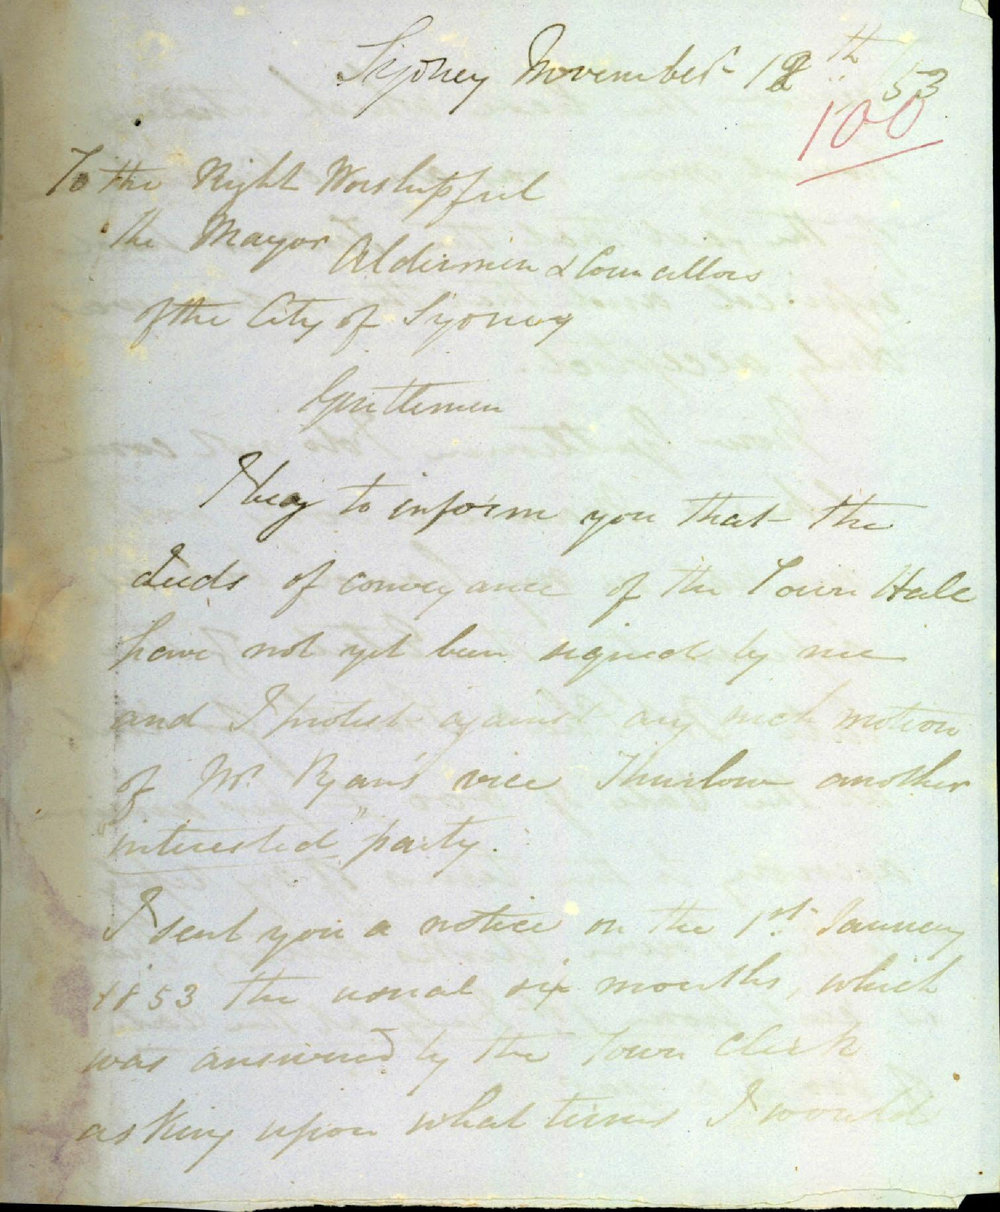 Sydney November 12th /53
100
To the Right Worshipful
the Mayor Aldermen & Councillors
of the City of Sydney
Gentlemen
I beg to inform you that the
deeds of conveyance of the Town Hall
have not yet been signed by me
and I protest against any such motion
of Mr. Ryan's vice Thurlow another
"interested" party.
I sent you a notice on the 1st January
1853 the usual six months, which
was answered by the Town Clerk
asking upon what terms I would